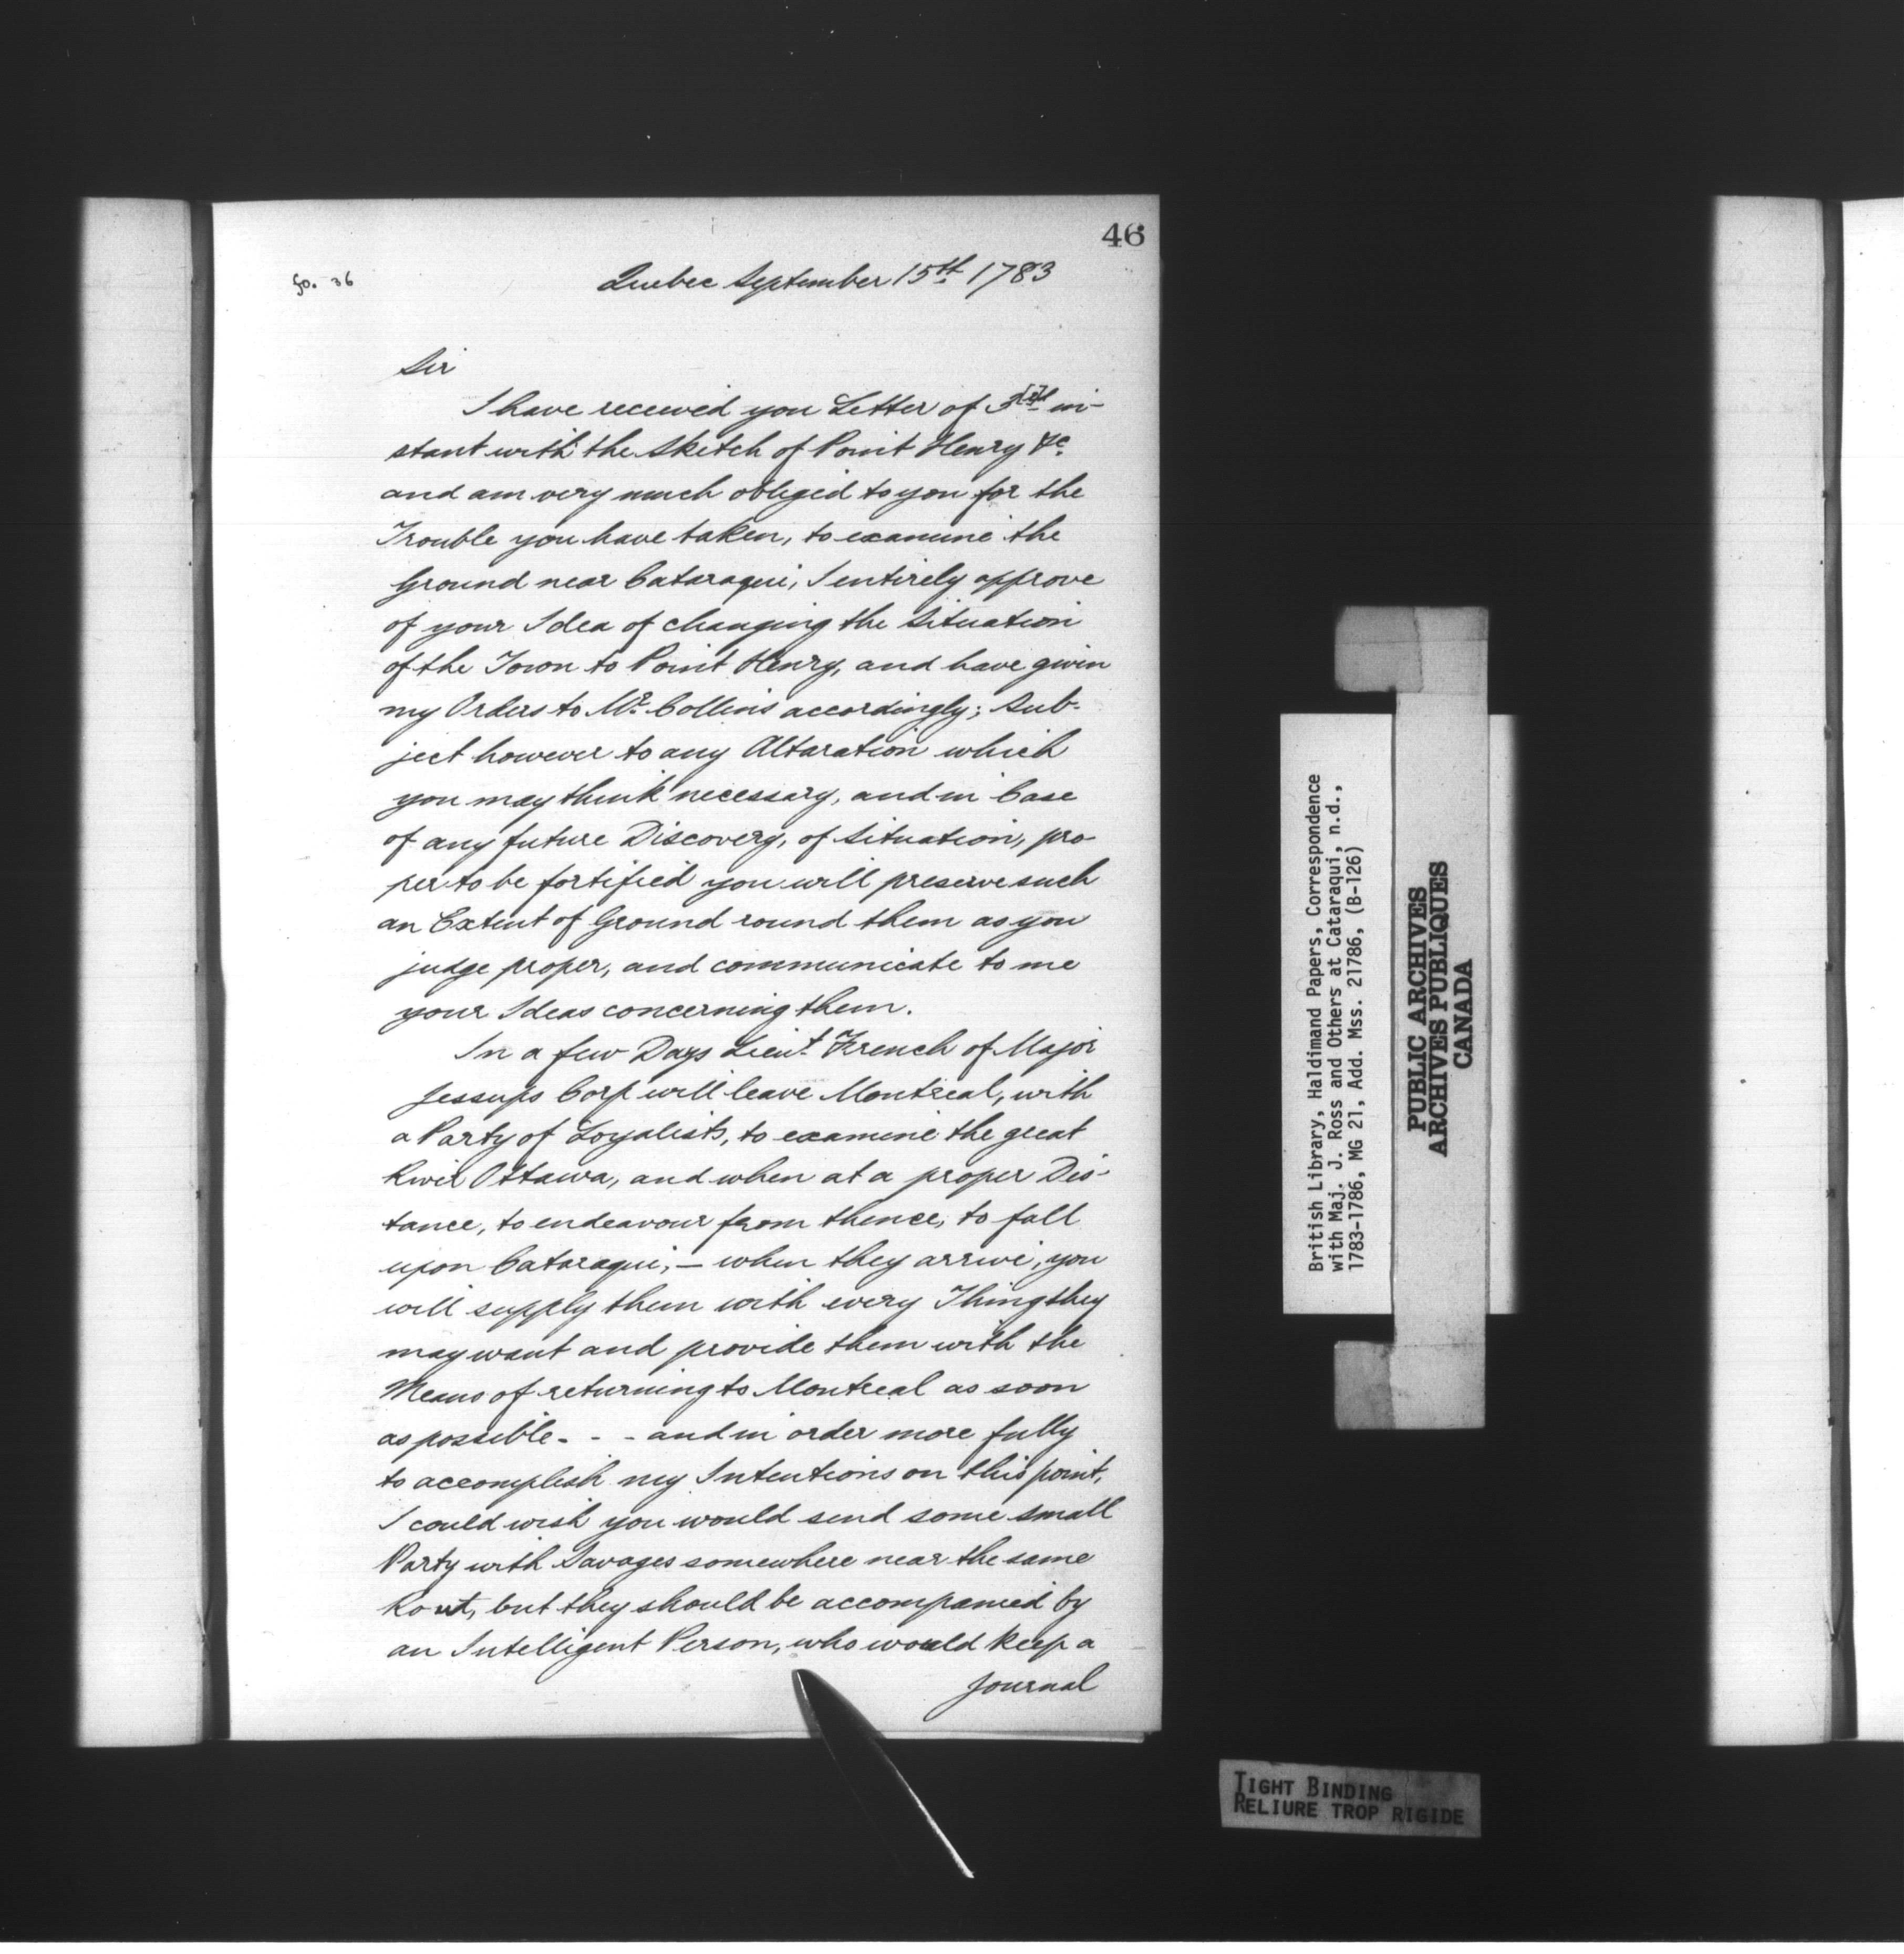 46
fo. 36
Quebec September 15th 1783
Sir
I have received you Letter of 3[rd] in-
stant with the Sketch of Point Henry &c
and am very much obliged to you for the
Trouble you have taken, to examine the
Ground near Cataraqui, I entirely approve
of your Idea of changing the Situation
of the Town to Point Henry, and have given
my Orders to Mr. Collins accordingly; Sub-
ject however to any Altaration which
you may think necessary, and in Case
of any future Discovery, of Situation, pro-
per to be fortified you will preserve such
an Extent of Ground round them as you
judge proper, and communicate to me
your Ideas concerning them.
In a few Days Lieut. French of Major
Jessups Corp will leave Montreal, with
a Party of Loyalists, to examine the great
River Ottawa, and when at a proper Dis-
tance, to endeavour from thence, to fall
upon Cataraqui, – when they arrive, you
will supply them with every Thing they
may want and provide them with the
Means of returning to Montreal as soon
as possible - - - and in order more fully
to accomplish my Intentions on this point,
I could wish you would send some small
Party with Savages somewhere near the same
Rout, but they should be accompanied by
an Intelligent Person, who would keep a
Journal
British Library, Haldimand Papers, Correspondence
with Maj. J. Ross and Others at Cataraqui, n.d.,
1783-1786, MG 21, Add. Mss. 21786, (B-126)
PUBLIC ARCHIVES
ARCHIVES PUBLIQUES
CANADA
TIGHT BINDING
RELIURE TROP RIGIDE